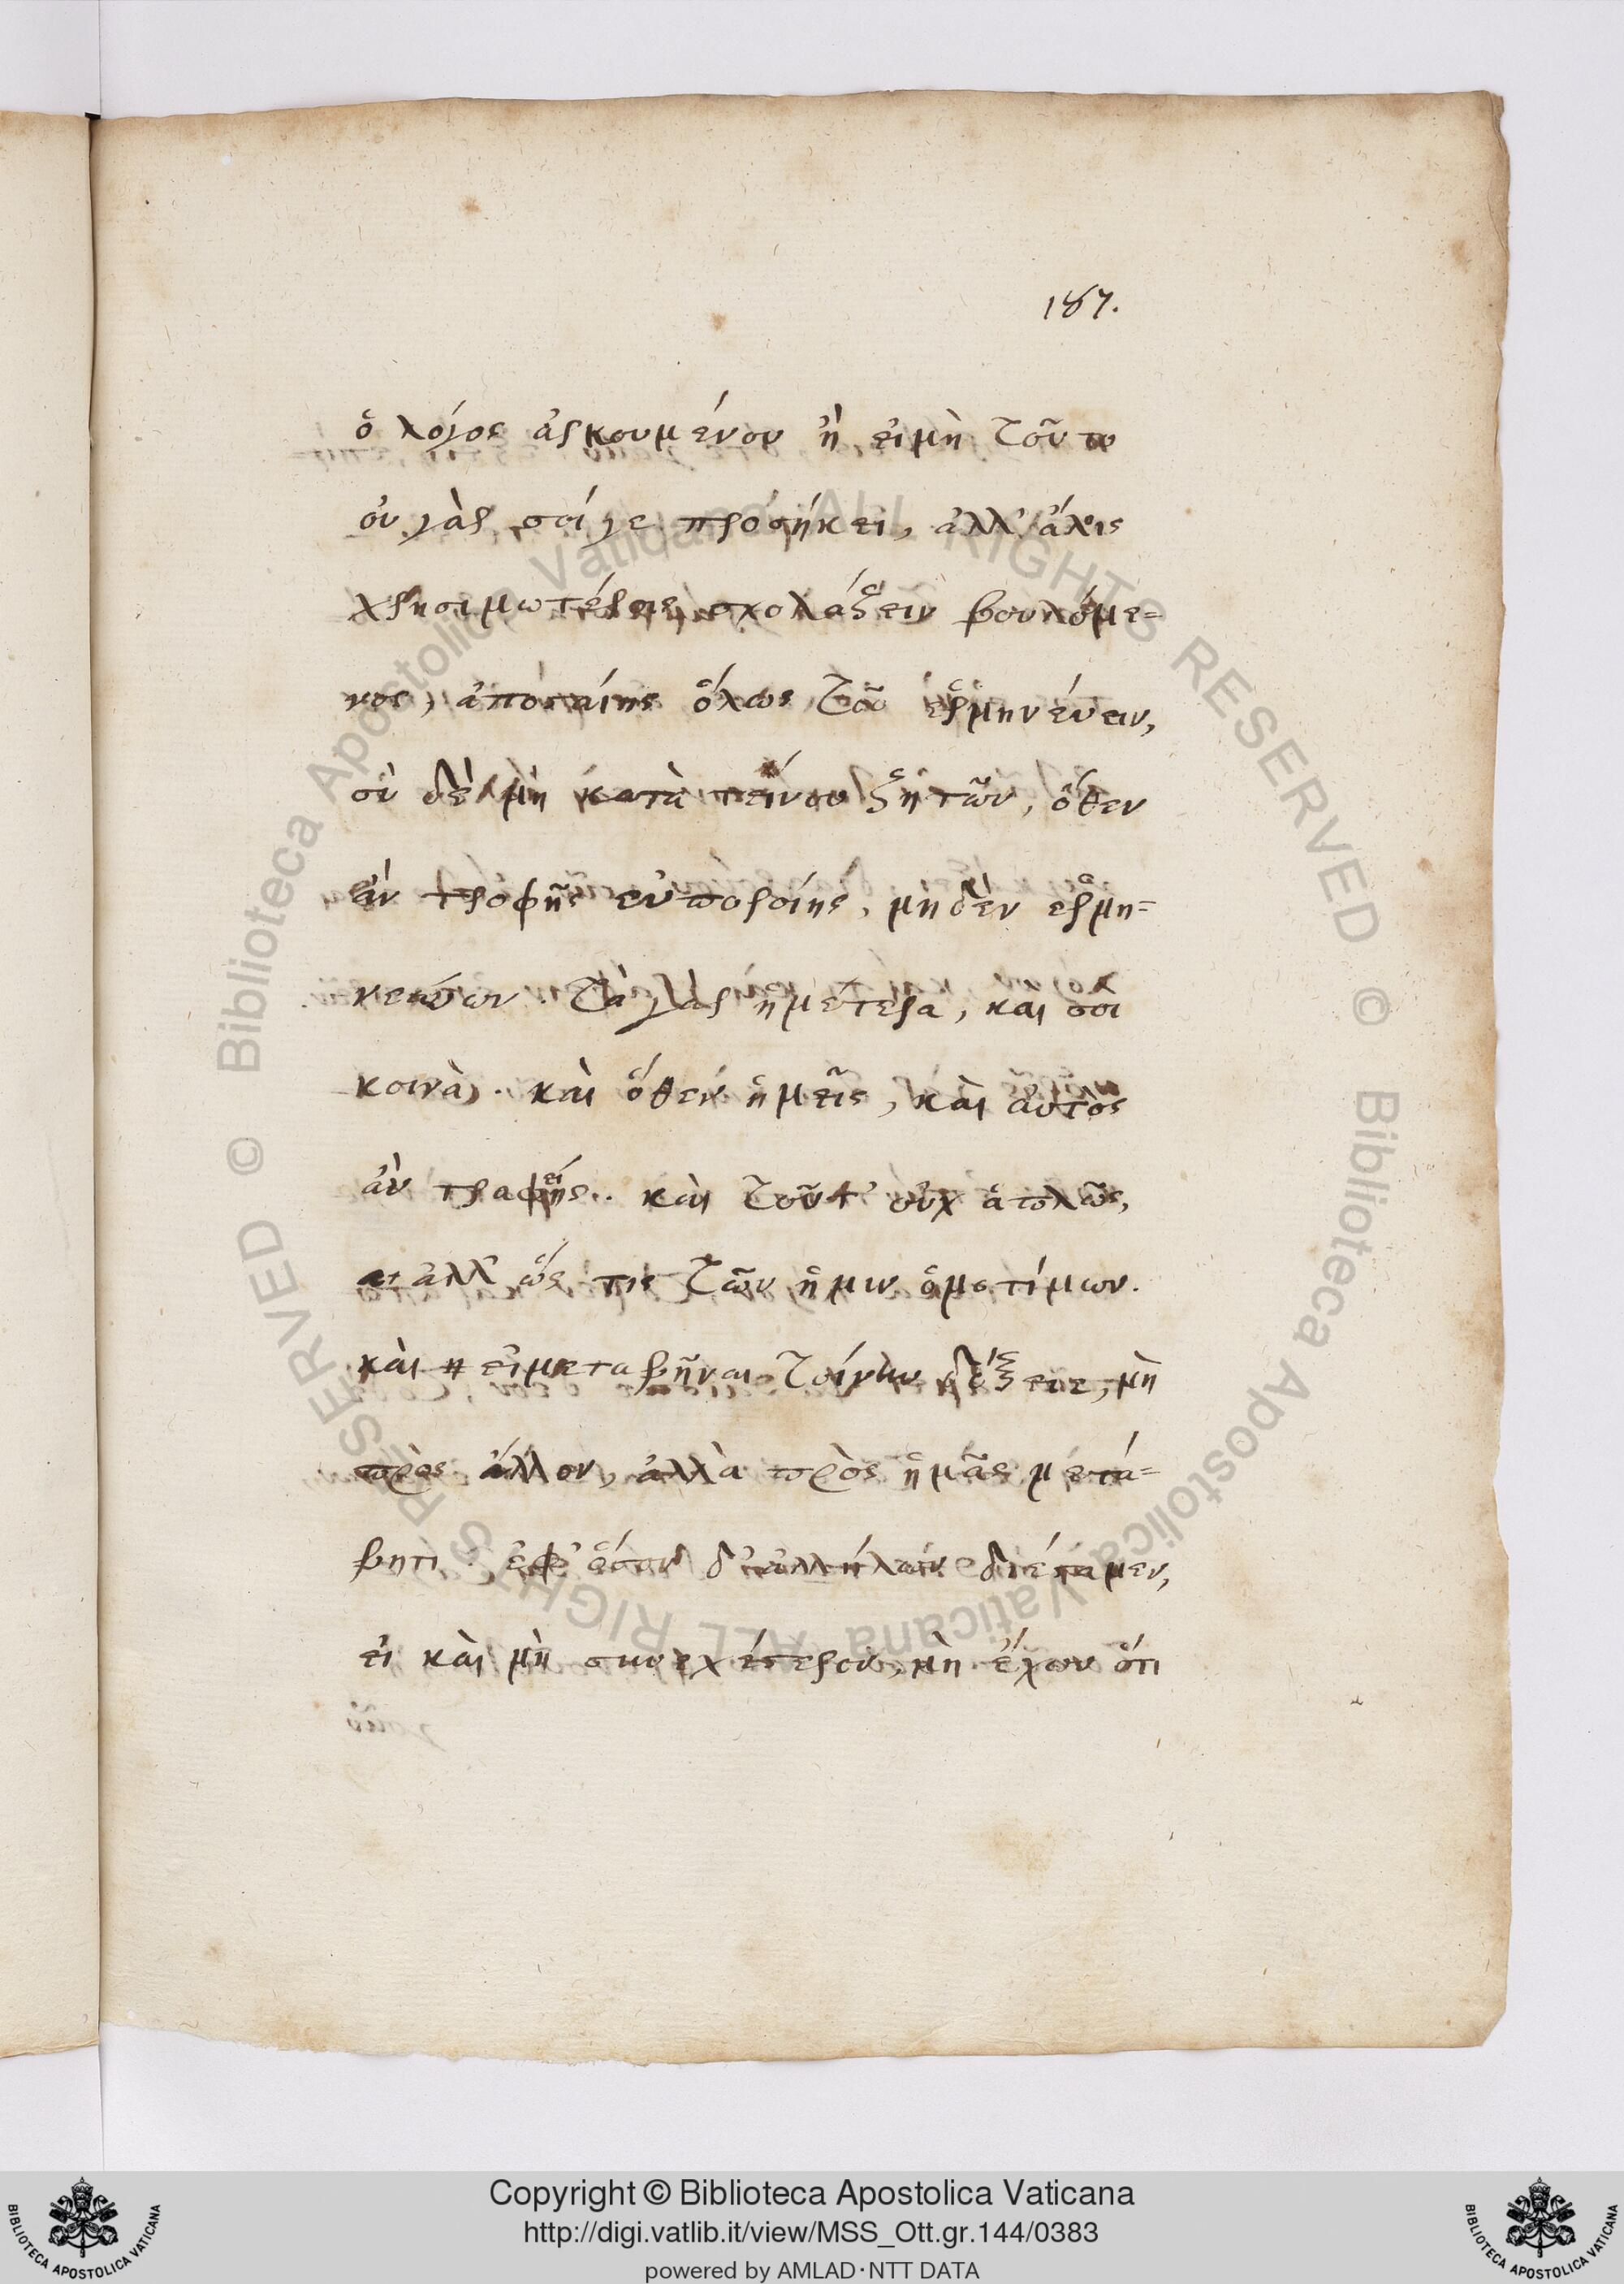 187.
ὁ λόγος ἀσκουμένου ἢ εἰμὴ τοῦτο
οὐ γὰρ σοί γε προσήκει, ἀλλ' ἄλοις
χρησιμωτέροις σχολάζειν βουλόμε=
νος, ἀποσταίης ὅλως τοῦ ἑρμηνεύειν,
σὺ δὲ μὴ κατὰ τείνου ζητῶν, ὅθεν
ἂν τροφῆς εὐποροίης, μηδὲν ἑρμη=
νεύων. Τὰ γὰρ ἡμέτερα, και σοι
κοινὰ. καὶ ὅθεν ἡμεῖς, καὶ αὐτὸς
ἂν τραφείης. καὶ τοῦτ' οὐχ ἁπλῶς,
ἀλλ' ὥς τις τῶν ἡμιν ὁμοτίμων.
καὶ εἰ μεταβῆναι τοίνυν δόξειε, μὴ
πρὸς ἄλλον, ἀλλὰ πρὸς ἡμᾶς μετά=
βητι. ἐφ' ὅσον δ' ἀλλήλων διέσταμεν,
εἰ καὶ μὴ συνεχέστερον, μὴ ἔχων ὅτι
Copyright © Biblioteca Apostolica Vaticana
http://digi.vatlib.it/view/MSS_Ott.gr.144/0383
powered by AMLAD·NTT DATA
BIBLIOTECA APOSTOLICA VATICANA
BIBLIOTECA APOSTOLICA VATICANA
© Biblioteca Apostolica Vaticana ALL RIGHTS RESERVED
© Biblioteca Apostolica Vaticana ALL RIGHTS RESERVED